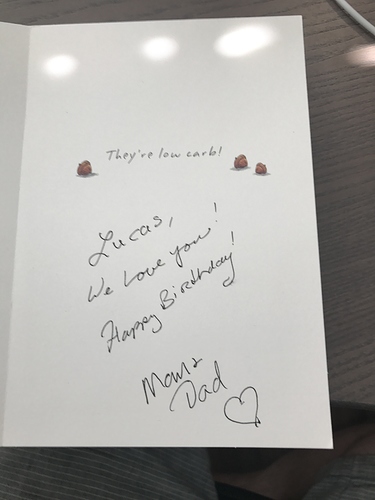 They're low carb!
Lucas,
We Love you!
Happy Birthday!
Mom &
Dad